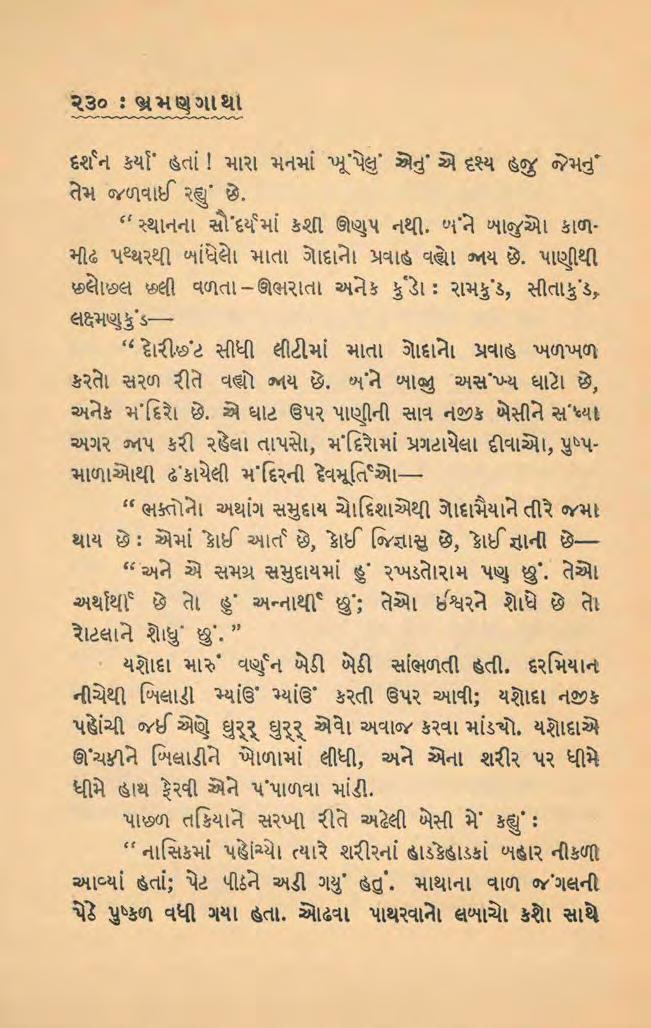 ૨૩૦ : ભ્રમણગાથા
દર્શન કર્યાં હતાં ! મારા મનમાં ખૂંપેલું એનું એ દૃશ્ય હજુ જેમનું
તેમ જળવાઈ રહ્યું છે.
“ સ્થાનના સૌંદર્યમાં કશી ઊણપ નથી. બંને બાજુએ કાળ-
મીંઢ પથ્થરથી બાંધેલો માતા ગોદાનો પ્રવાહ વહ્યો જાય છે. પાણીથી
છલોછલ છલી વળતા – ઊભરાતા અનેક કુંડો : રામકુંડ, સીતાકુંડ,
લક્ષ્મણકુંડ—
“ દોરીછંટ સીધી લીટીમાં માતા ગોદાનો પ્રવાહ ખળખળ
કરતો સરળ રીતે વહ્યો જાય છે. બંને બાજુ અસંખ્ય ઘાટો છે,
અનેક મંદિરો છે. એ ઘાટ ઉપર પાણીની સાવ નજીક બેસીને સંધ્યા
અગર જાપ કરી રહેલા તાપસો, મંદિરોમાં પ્રગટાયેલા દીવાઓ, પુષ્પ-
માળાઓથી ઢંકાયેલી મંદિરની દેવમૂર્તિઓ—
“ ભક્તોનો અથાંગ સમુદાય ચોદિશાએથી ગોદામૈયાને તીરે જમા
થાય છે : એમાં કોઈ આર્ત છે, કોઈ જિજ્ઞાસુ છે, કોઈ જ્ઞાની છે—
“ અને એ સમગ્ર સમુદાયમાં હું રખડતોરામ પણ છું. તેઓ
અર્થાર્થી છે તો હું અન્નાર્થી છું; તેઓ ઈશ્વરને શોધે છે તો
રોટલાને શોધું છું. ”
યશોદા મારું વર્ણન બેઠી બેઠી સાંભળતી હતી. દરમિયાન
નીચેથી બિલાડી મ્યાંઉં મ્યાંઉં કરતી ઉપર આવી; યશોદા નજીક
પહોંચી જઈ એણે ઘુરૂર્ ઘુરૂર્ એવો અવાજ કરવા માંડ્યો. યશોદાએ
ઊંચકીને બિલાડીને ખોળામાં લીધી, અને એના શરીર પર ધીમે
ધીમે હાથ ફેરવી એને પંપાળવા માંડી.
પાછળ તકિયાને સરખી રીતે અઢેલી બેસી મેં કહ્યું :
“ નાસિકમાં પહોંચ્યો ત્યારે શરીરનાં હાડકેહાડકાં બહાર નીકળી
આવ્યાં હતાં; પેટ પીઠને અડી ગયું હતું. માથાના વાળ જંગલની
પેઠે પુષ્કળ વધી ગયા હતા. ઓઢવા પાથરવાનો લબાચો કશો સાથે